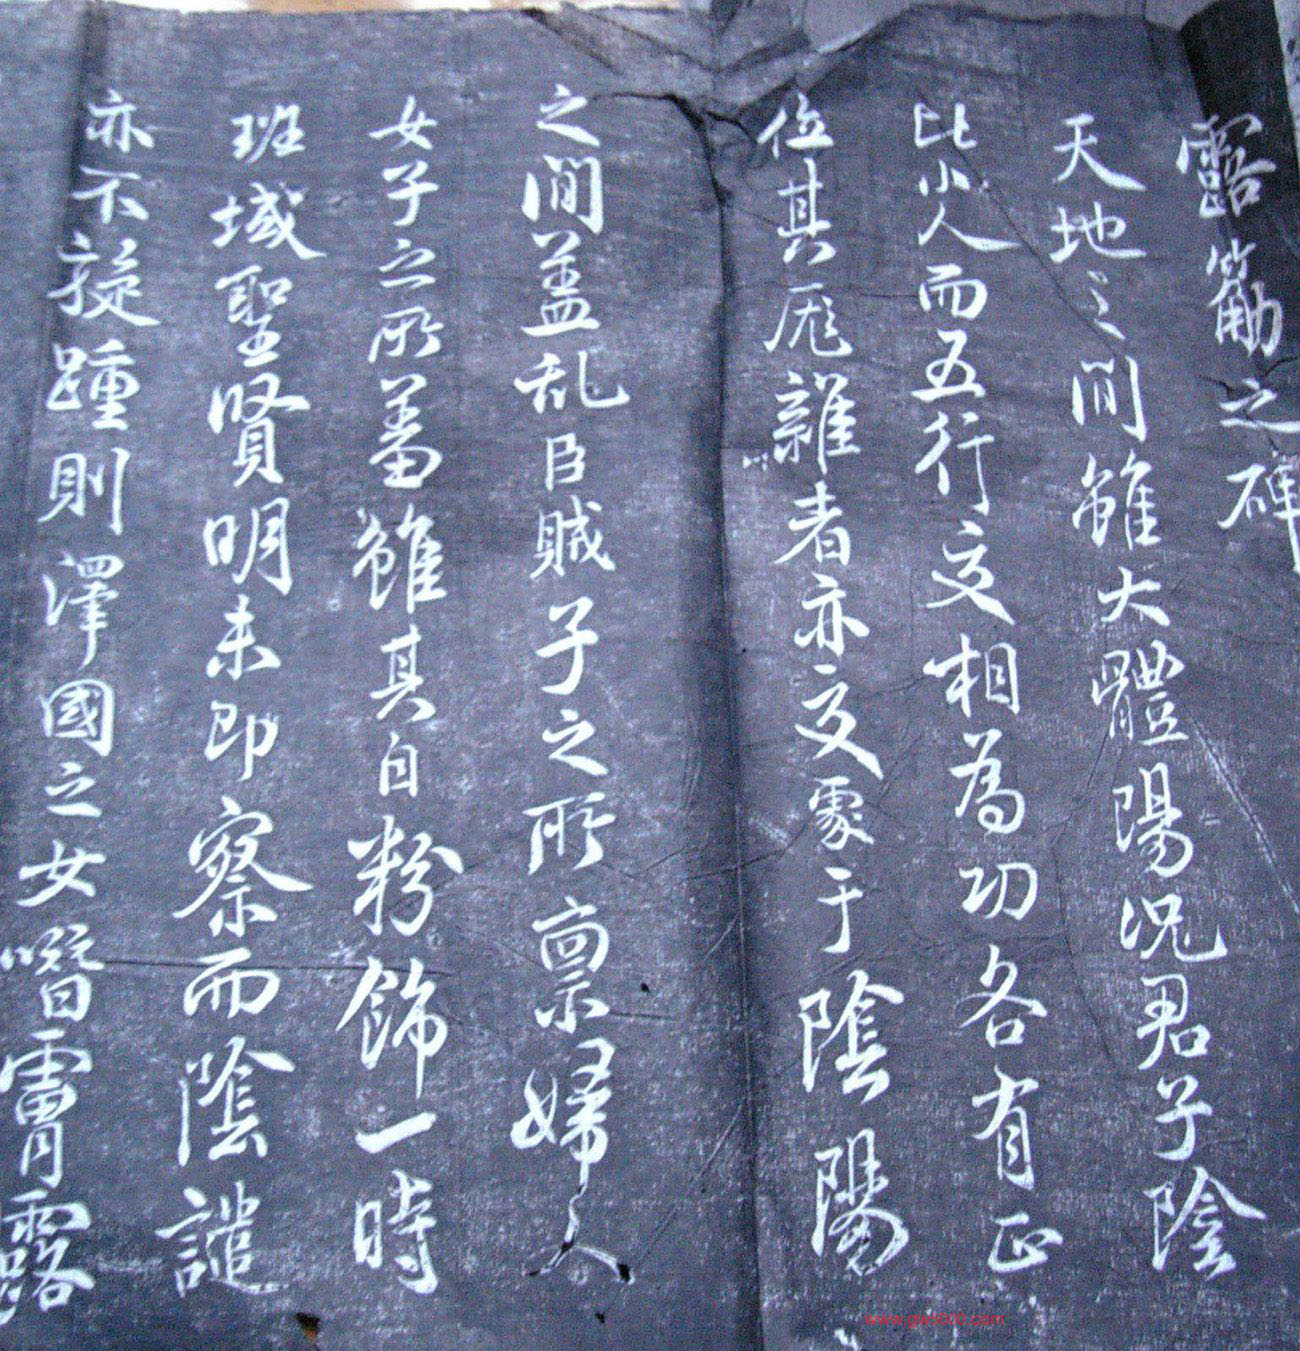 露筋之碑
天地之間雖大體陽況君子陰
比小人而五行交相為功各有正
位其厖雜者亦交象于陰陽
之間盖乱臣賊子之所禀婦人
女子之所羞雖其自粉飾一時
班域聖賢明未即察而陰譴
亦不旋踵則澤國之女噆霄露
www.gw5000.com